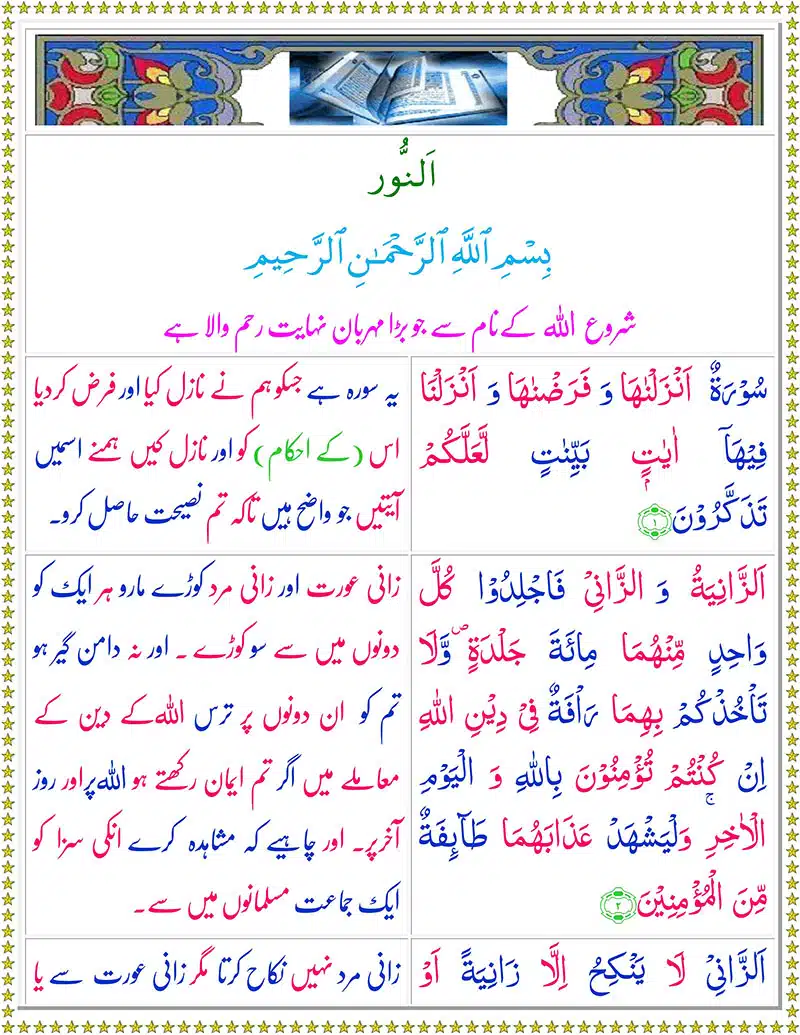 اَلنُّور
بِسْمِ ٱللَّهِ ٱلرَّحْمَـٰنِ ٱلرَّحِيمِ
شروع اللہ کے نام سے جو بڑا مہربان نہایت رحم والا ہے
سُوۡرَةٌ اَنۡزَلۡنٰهَا وَ فَرَضۡنٰهَا وَ اَنۡزَلۡنَا
فِيۡهَاۤ اٰيٰتٍۢ بَيِّنٰتٍ لَّعَلَّكُمۡ
تَذَكَّرُوۡنَ ﴿۱﴾
یہ سورہ ہے جسکو ہم نے نازل کیا اور فرض کردیا
اس (کے احکام) کو اور نازل کیں ہمنے اسمیں
آیتیں جو واضح ہیں تاکہ تم نصیحت حاصل کرو۔
اَلزَّانِيَةُ وَ الزَّانِىۡ فَاجۡلِدُوۡا كُلَّ
وَاحِدٍ مِّنۡهُمَا مِائَةَ جَلۡدَةٍ ۖ وَّلَا
تَاۡخُذۡكُمۡ بِهِمَا رَاۡفَةٌ فِىۡ دِيۡنِ اللّٰهِ
اِنۡ كُنۡتُمۡ تُؤۡمِنُوۡنَ بِاللّٰهِ وَ الۡيَوۡمِ
الۡاٰخِرِ ۚ وَلۡيَشۡهَدۡ عَذَابَهُمَا طَآٮِٕفَةٌ
مِّنَ الۡمُؤۡمِنِيۡنَ ﴿۲﴾
زانی عورت اور زانی مرد کوڑے مارو ہر ایک کو
دونوں میں سے سو کوڑے ۔ اور نہ دامن گیر ہو
تم کو ان دونوں پر ترس اللہ کے دین کے
معاملے میں اگر تم ایمان رکھتے ہو اللہ پر اور روز
آخر پر۔ اور چاہیے کہ مشاہدہ کرے انکی سزا کو
ایک جماعت مسلمانوں میں سے۔
اَلزَّانِىۡ لَا يَنۡكِحُ اِلَّا زَانِيَةً اَوۡ
زانی مرد نہیں نکاح کرتا مگر زانی عورت سے یا